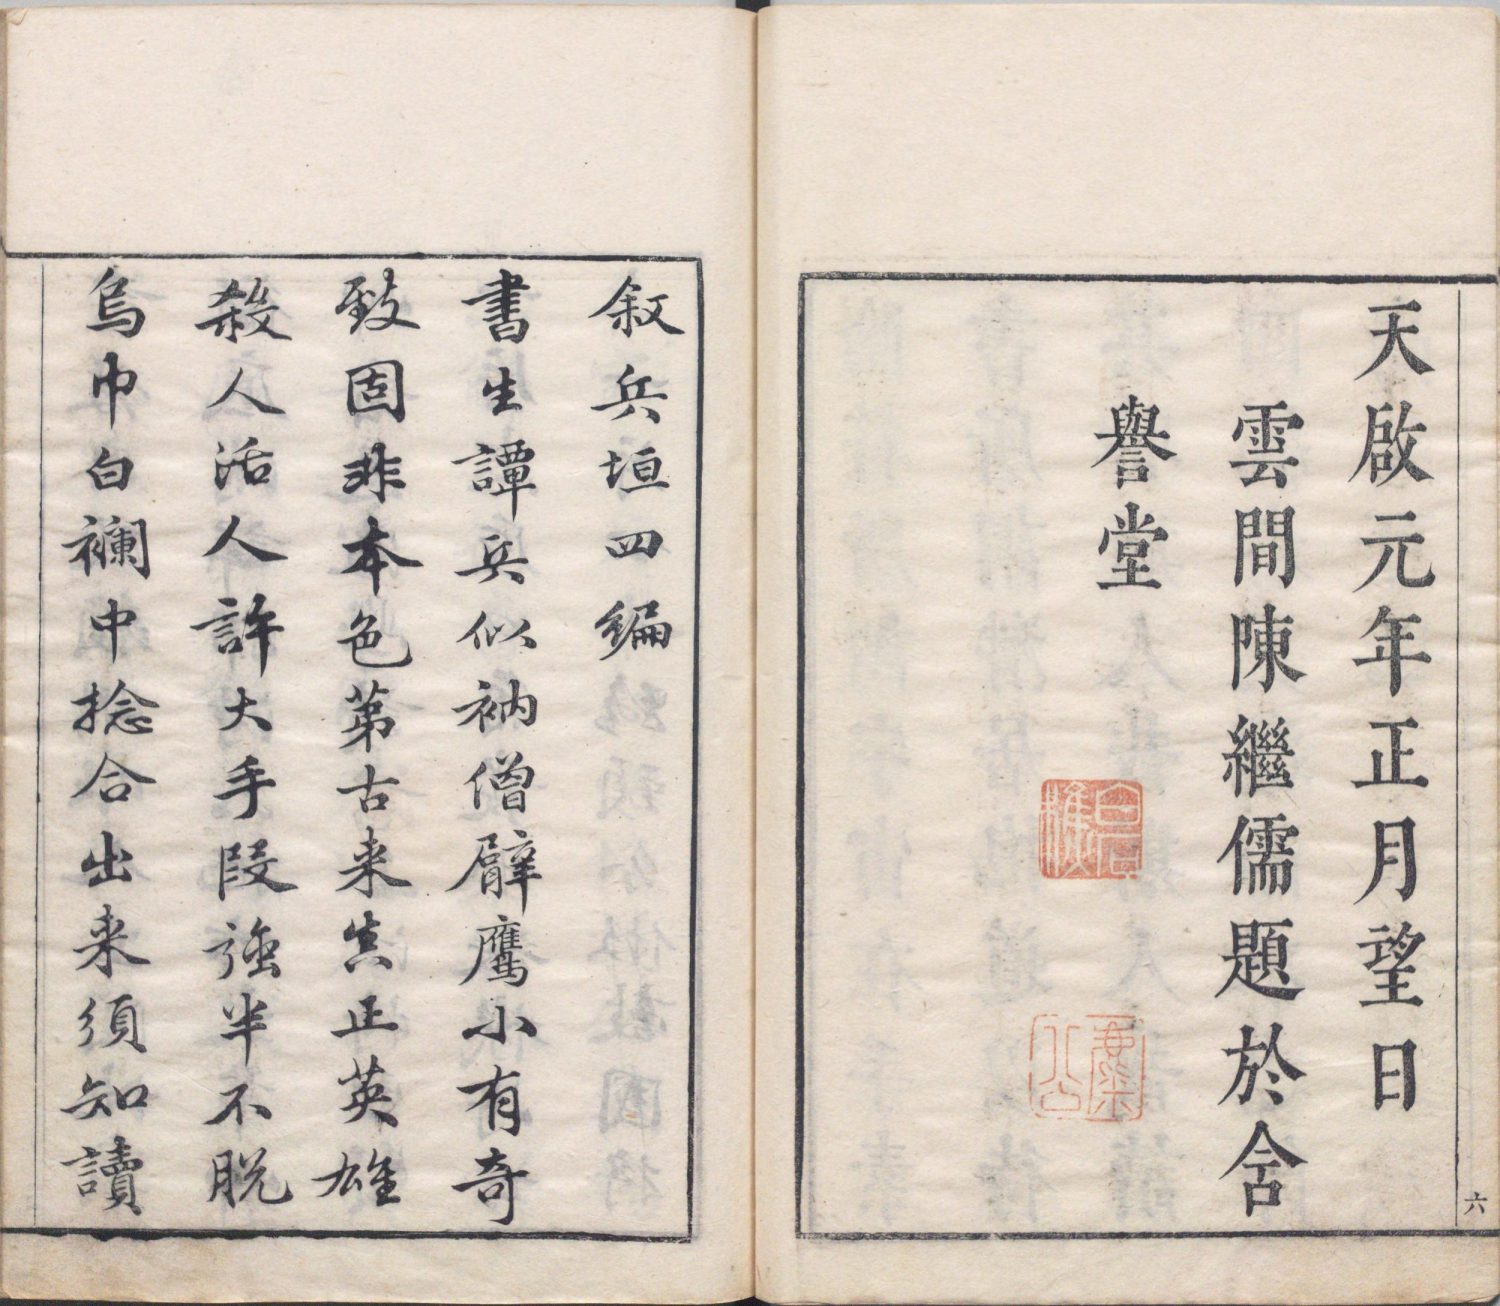 天啟元年正月望日
雲間陳繼儒題於含
譽堂
六
叙兵垣四編
書生譚兵似衲僧臂鷹小有奇
致固非本色第古来真正英雄
殺人活人許大手段強半不脱
烏巾白襴中捻合出来須知讀